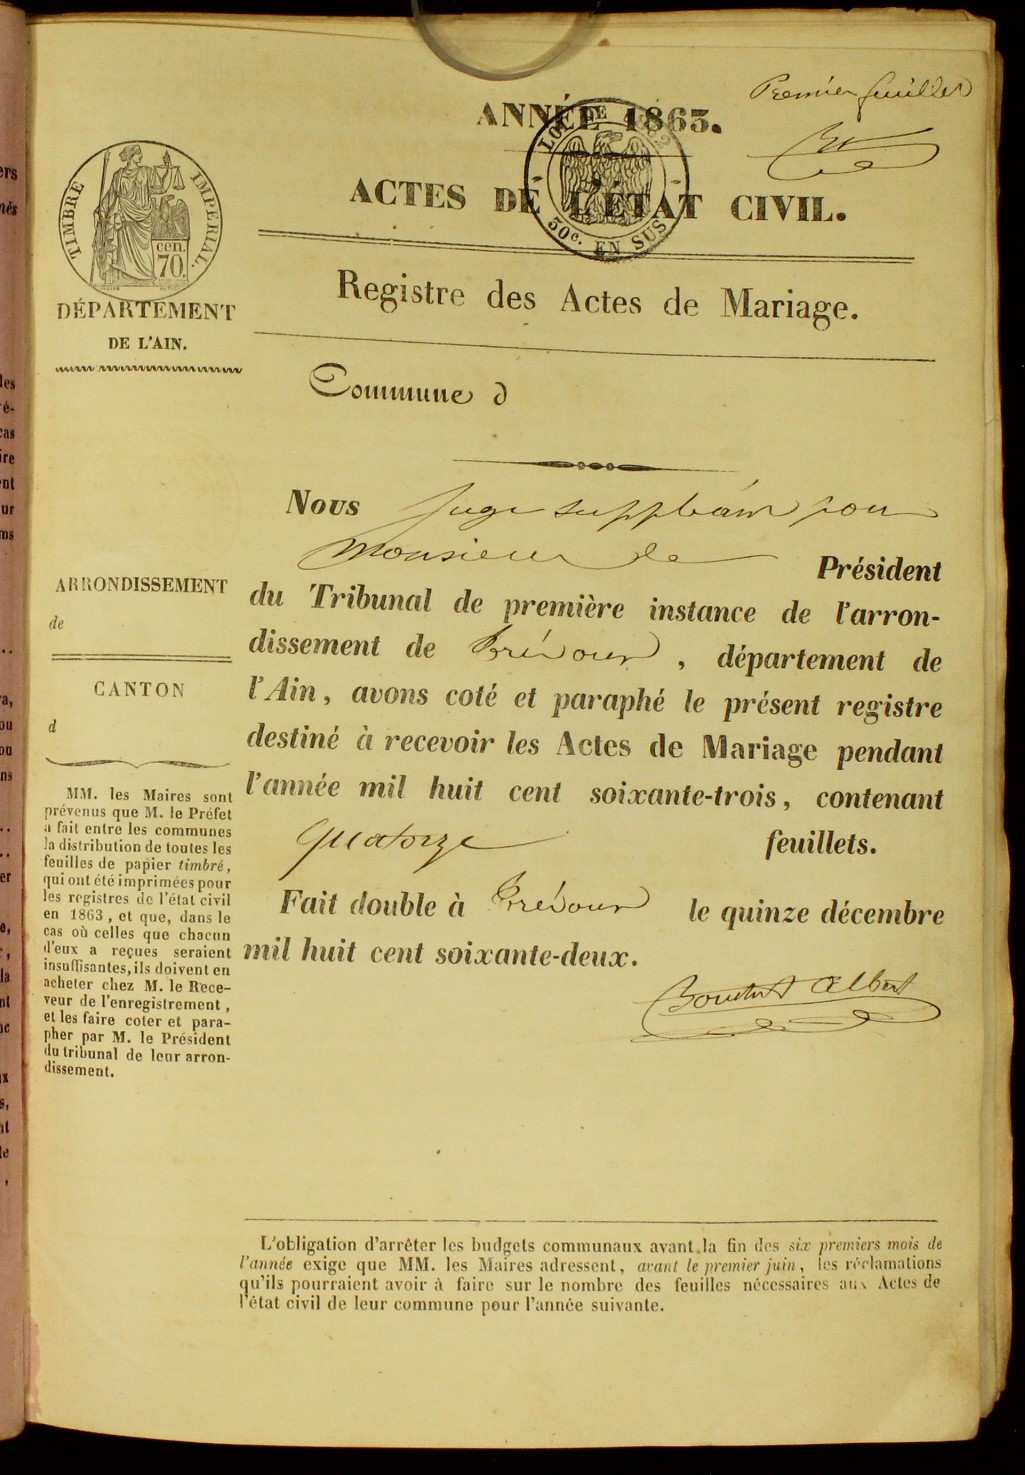 Premier feuillet
ANNÉE 1863.
LOI DE 1862
50c. EN SUS
ACTES DE L'ÉTAT CIVIL.
TIMBRE IMPERIAL.
cen.
70.
DÉPARTEMENT
DE L'AIN.
Registre des Actes de Mariage.
Commune d
Nous Juge suppléant pour
Monsieur le Président
du Tribunal de première instance de l'arron-
dissement de Trévoux, département de
l'Ain, avons coté et paraphé le présent registre
destiné à recevoir les Actes de Mariage pendant
l'année mil huit cent soixante-trois, contenant
quatorze feuillets.
Fait double à Trévoux le quinze décembre
mil huit cent soixante-deux.
Albert
ARRONDISSEMENT
de
CANTON
d
MM. les Maires sont
prévenus que M. le Préfet
a fait entre les communes
la distribution de toutes les
feuilles de papier timbré,
qui ont été imprimées pour
les registres de l'état civil
en 1863, et que, dans le
cas où celles que chacun
d'eux a reçues seraient
insuffisantes, ils doivent en
acheter chez M. le Rece-
veur de l'enregistrement,
et les faire coter et para-
pher par M. le Président
du tribunal de leur arron-
dissement.
L'obligation d'arrêter les budgets communaux avant la fin des six premiers mois de
l'année exige que MM. les Maires adressent, avant le premier juin, les réclamations
qu'ils pourraient avoir à faire sur le nombre des feuilles nécessaires aux Actes de
l'état civil de leur commune pour l'année suivante.